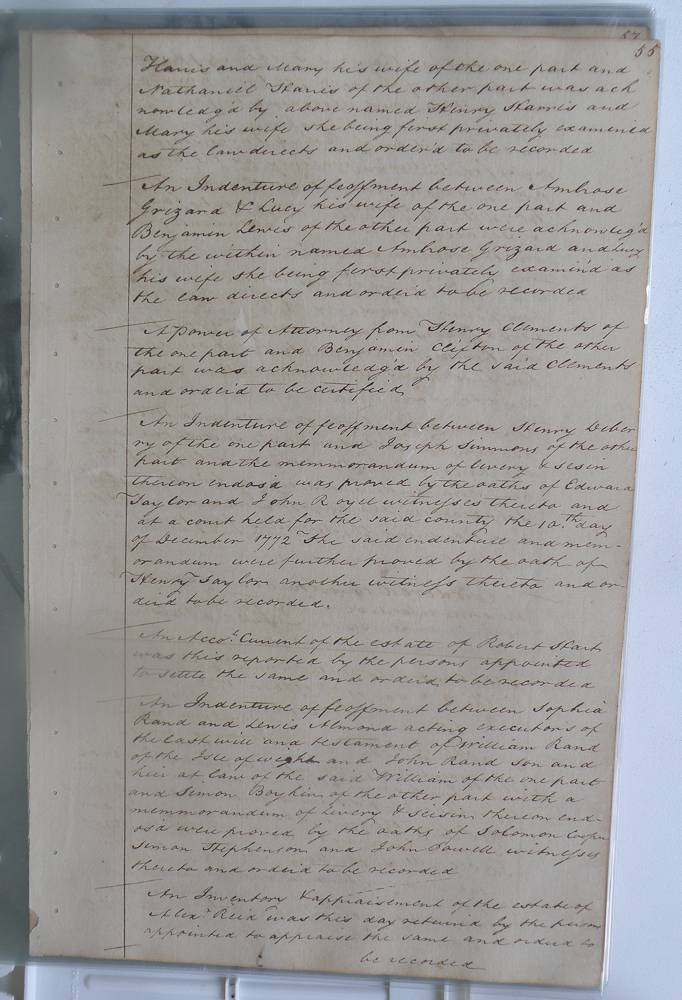 57
55
Harris and Mary his wife of the one part and
Nathaniel Harris of the other part was ack
nowledg'd by above named Henry Harris and
Mary his wife she being first privately examined
as the law directs and order'd to be recorded
An Indenture of feoffment between Ambrose
Grizard & Lucy his wife of the one part and
Benjamin Lewis of the other part were acknowleg'd
by the within named Ambrose Grizard and Lucy
his wife she being ferst privately examin'd as
the law directs and order'd to be recorded
A Power of Attorney from Henry Clements of
the one part and Benjamin Clifton of the other
part was acknowledg'd by the said Clements
and order'd to be certified,
An Indenture of feoffment between Henry Deber
ry of the one part and Joseph Simmons of the other
part and the memmorandum of livery & sesin
thereon endosd was proved by the oaths of Edward
Taylor and John Royel witnesses thereto and
at a court held for the said county the 10.th day
of December 1772 The said endenture and mem-
orandum were further proved by the oath of
Henry Taylor another witness thereto and or-
der'd to be recorded.
An Acco.t Current of the estate of Robert Hart
was this reported by the persons appointed
to settle the same and order'd, to be recorded
An Indenture of feoffment between Sophia
Rand and Lewis Almond acting executors of
the last will and testament of William Rand
of the Isle of wight and John Rand son and
heir at law of the said William of the one part
and Simon Boykin of the other part with a
memmorandum of livery & seisin thereon end-
os'd were proved by the oaths of Solomon Cooper
Simon Stephenson and John Powell witnesses
thereto and order'd to be recorded
An Inventory & appraisement of the estate of
Alex.r Reid was this day returned by the persons
appointed to appraise the same and orderd to
be recorded